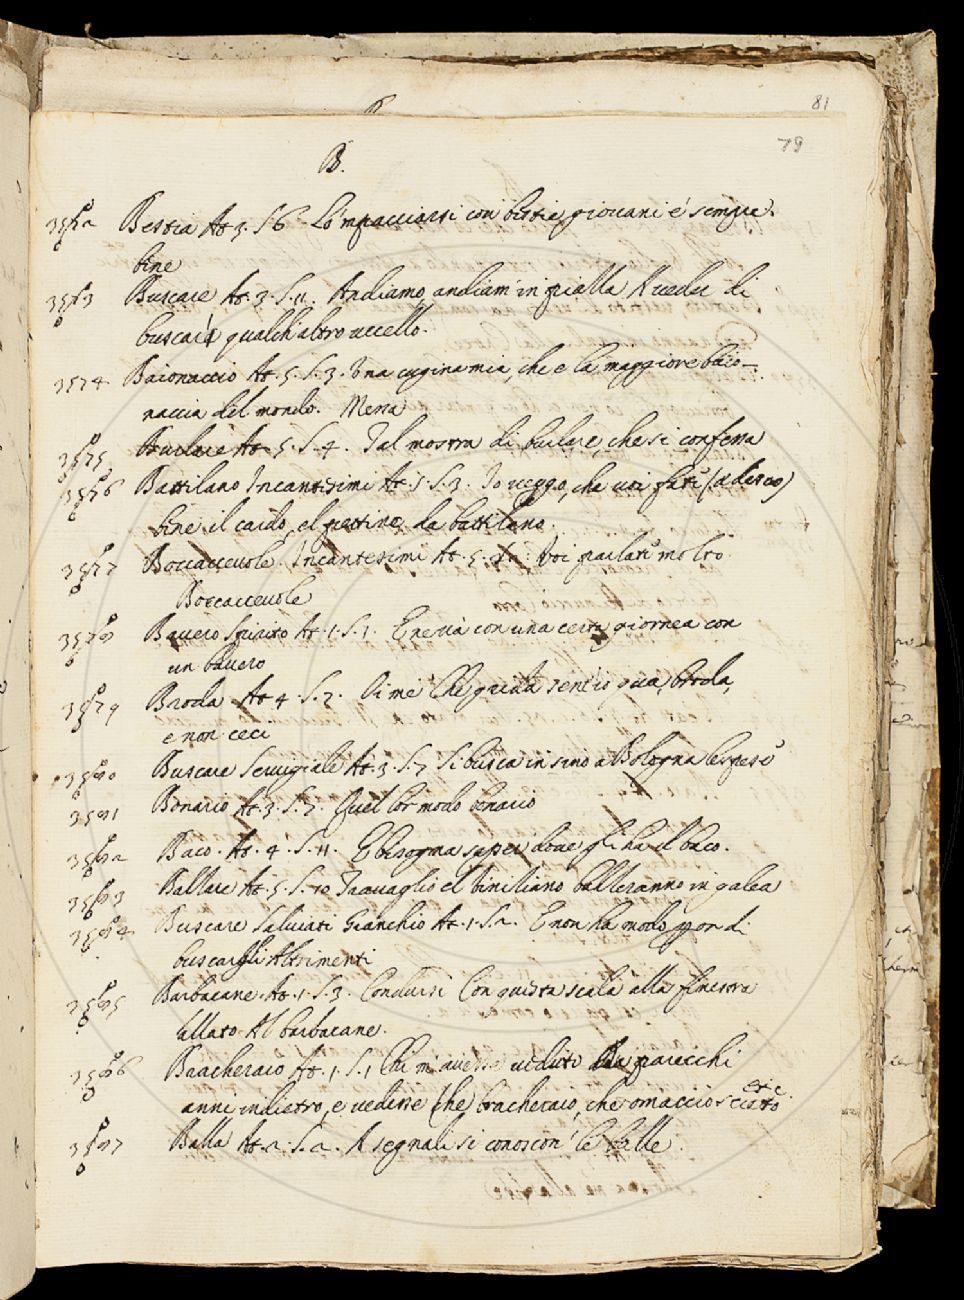 81
79
B.
3572 Bestia At. 5. S. 6 Lo 'mpacciarsi con bestie giovani è sempre
bene
3573 Buscare At. 3. S. 11. Andiamo, andiam in pialla A veder di
buscar qualch'altro uccello.
3574 Baionaccio At. 5. S. 3. Una cugina mia, che e la maggiore baio-
naccia del mondo. Mena
3575 Burlare At. 5. S. 4. Fal mostra di burlare, che si conferma
3576 Battilano Incantesimi At. 5. S. 3. Io veggo, che voi fate (a desco)
bene il cardo, el pettine da battilano.
3577 Boccaccevole. Incantesimi At. 5. Voi parlate molto
Boccaccevole
3578 Bavero Spirito At. 1. S. 1. E resta con una certa giornea con
un bavero
3579 Broda At. 4. S. 2. Oimè Che grida sentio qua, broda,
e non ceci
3580 Buscare Servigiale At. 3. S. 7 Si busca insino a Bologna le spese
3581 Bonario At. 3. S. 7. Quel lor modo bonario
3582 Baco. At. 4. S. 11. E bisogna saper dove gli ha il baco.
3583 Ballare At. 5. S. 10 Travaglio el Viniliano balleranno in galea
3584 Buscare Salviati Granchio At. 1. S. 2. E non ha modo ggor di
buscargli Altrimenti
3585 Barbacane. At. 1. S. 3. Condursi Con questa scala alla finestra
Allato Al barbacane.
3586 Bracheraio At. 1. S. 1 Chi m'avesse veduto da parecchi
anni indietro, e vedesse che bracheraio, che omaccio
3587 Balla At. 2. S. 2. A segnali si conoscon le balle.